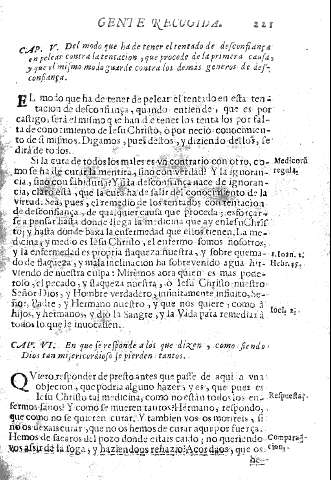 GENTE RECOGIDA. 221
CAP. V. Del modo que ha de tener el tentado de desconfiança
en pelear contra la tentacion, que procede de la primera causa,
y que el mismo modo guarde contra los demas generos de des-
confiança.
EL modo que ha de tener de pelear el tentado en esta ten-
tacion de desconfiança, quando entiende, que es por
castigo, será el mismo que han de tener los tentados por fal-
ta de conocimiento de Iesu Christo, ò por necio conocimien-
to de si mismos. Digamos, pues destos, y diziendo dellos, se
dirà de todos.
Si la cura de todos los males es vn contrario con otro, co-
mo se ha de curar la mentira, sino con verdad? Y la ignoran-
cia, sino con sabiduria? Y si la desconfiança nace de ignoran-
cia, claro està, que la cura ha de salir del conocimiento de la
virtud. Sea, pues, el remedio de los tentados con tentacion
de desconfiança, de qualquier causa que proceda; esforçar-
se a pensar hasta donde llega la medicina que ay en Iesu Chris-
to; y hasta donde baxa la enfermedad que ellos tienen. La me-
dicina, y medio es Iesu Christo, el enfermo somos nosotros,
y la enfermedad es propria flaqueza nuestra, y sobre quema-
do de flaqueza, y mala inclinacion ha sobrevenido agua hir-
viendo de nuestra culpa: Mirèmos aora quien es mas pode-
roso, el pecado, y flaqueza nuestra, ò Iesu Christo nuestro
Señor Dios, y Hombre verdadero, infinitamente infinito, he-
ño, Padre, y Hermano nuestro, y que nos quiere; como à
hijos, y hermanos, y diò la Sangre, y la Vida para remediar à
todos los que le invocassen.
Medicorũ
regula.
1. Ioan. 1.
Hebr. 9.
Ioel. 2.
CAP. VI. En que se responde a los que dizen, como siendo
Dios tan misericordioso se pierden tantos.
QViero responder de presto antes que passe de aqui a vna
objecion, que podria alguno hazer, y es, que pues es
Iesu Christo tal medicina, como no estàn todos los en-
fermos sanos? Y como se mueren tantos? Hermano, respondo,
que como no se quieren curar. Y tambien vos os morireis, si
no os dexais curar, que no os han de curar aqui por fuerça.
Hemos de sacaros del pozo donde estais caido; no queriendo
vos assir de la soga, y haziendo os rehazio? Acordaos, que os
Respuesta.
Compara-
cion.